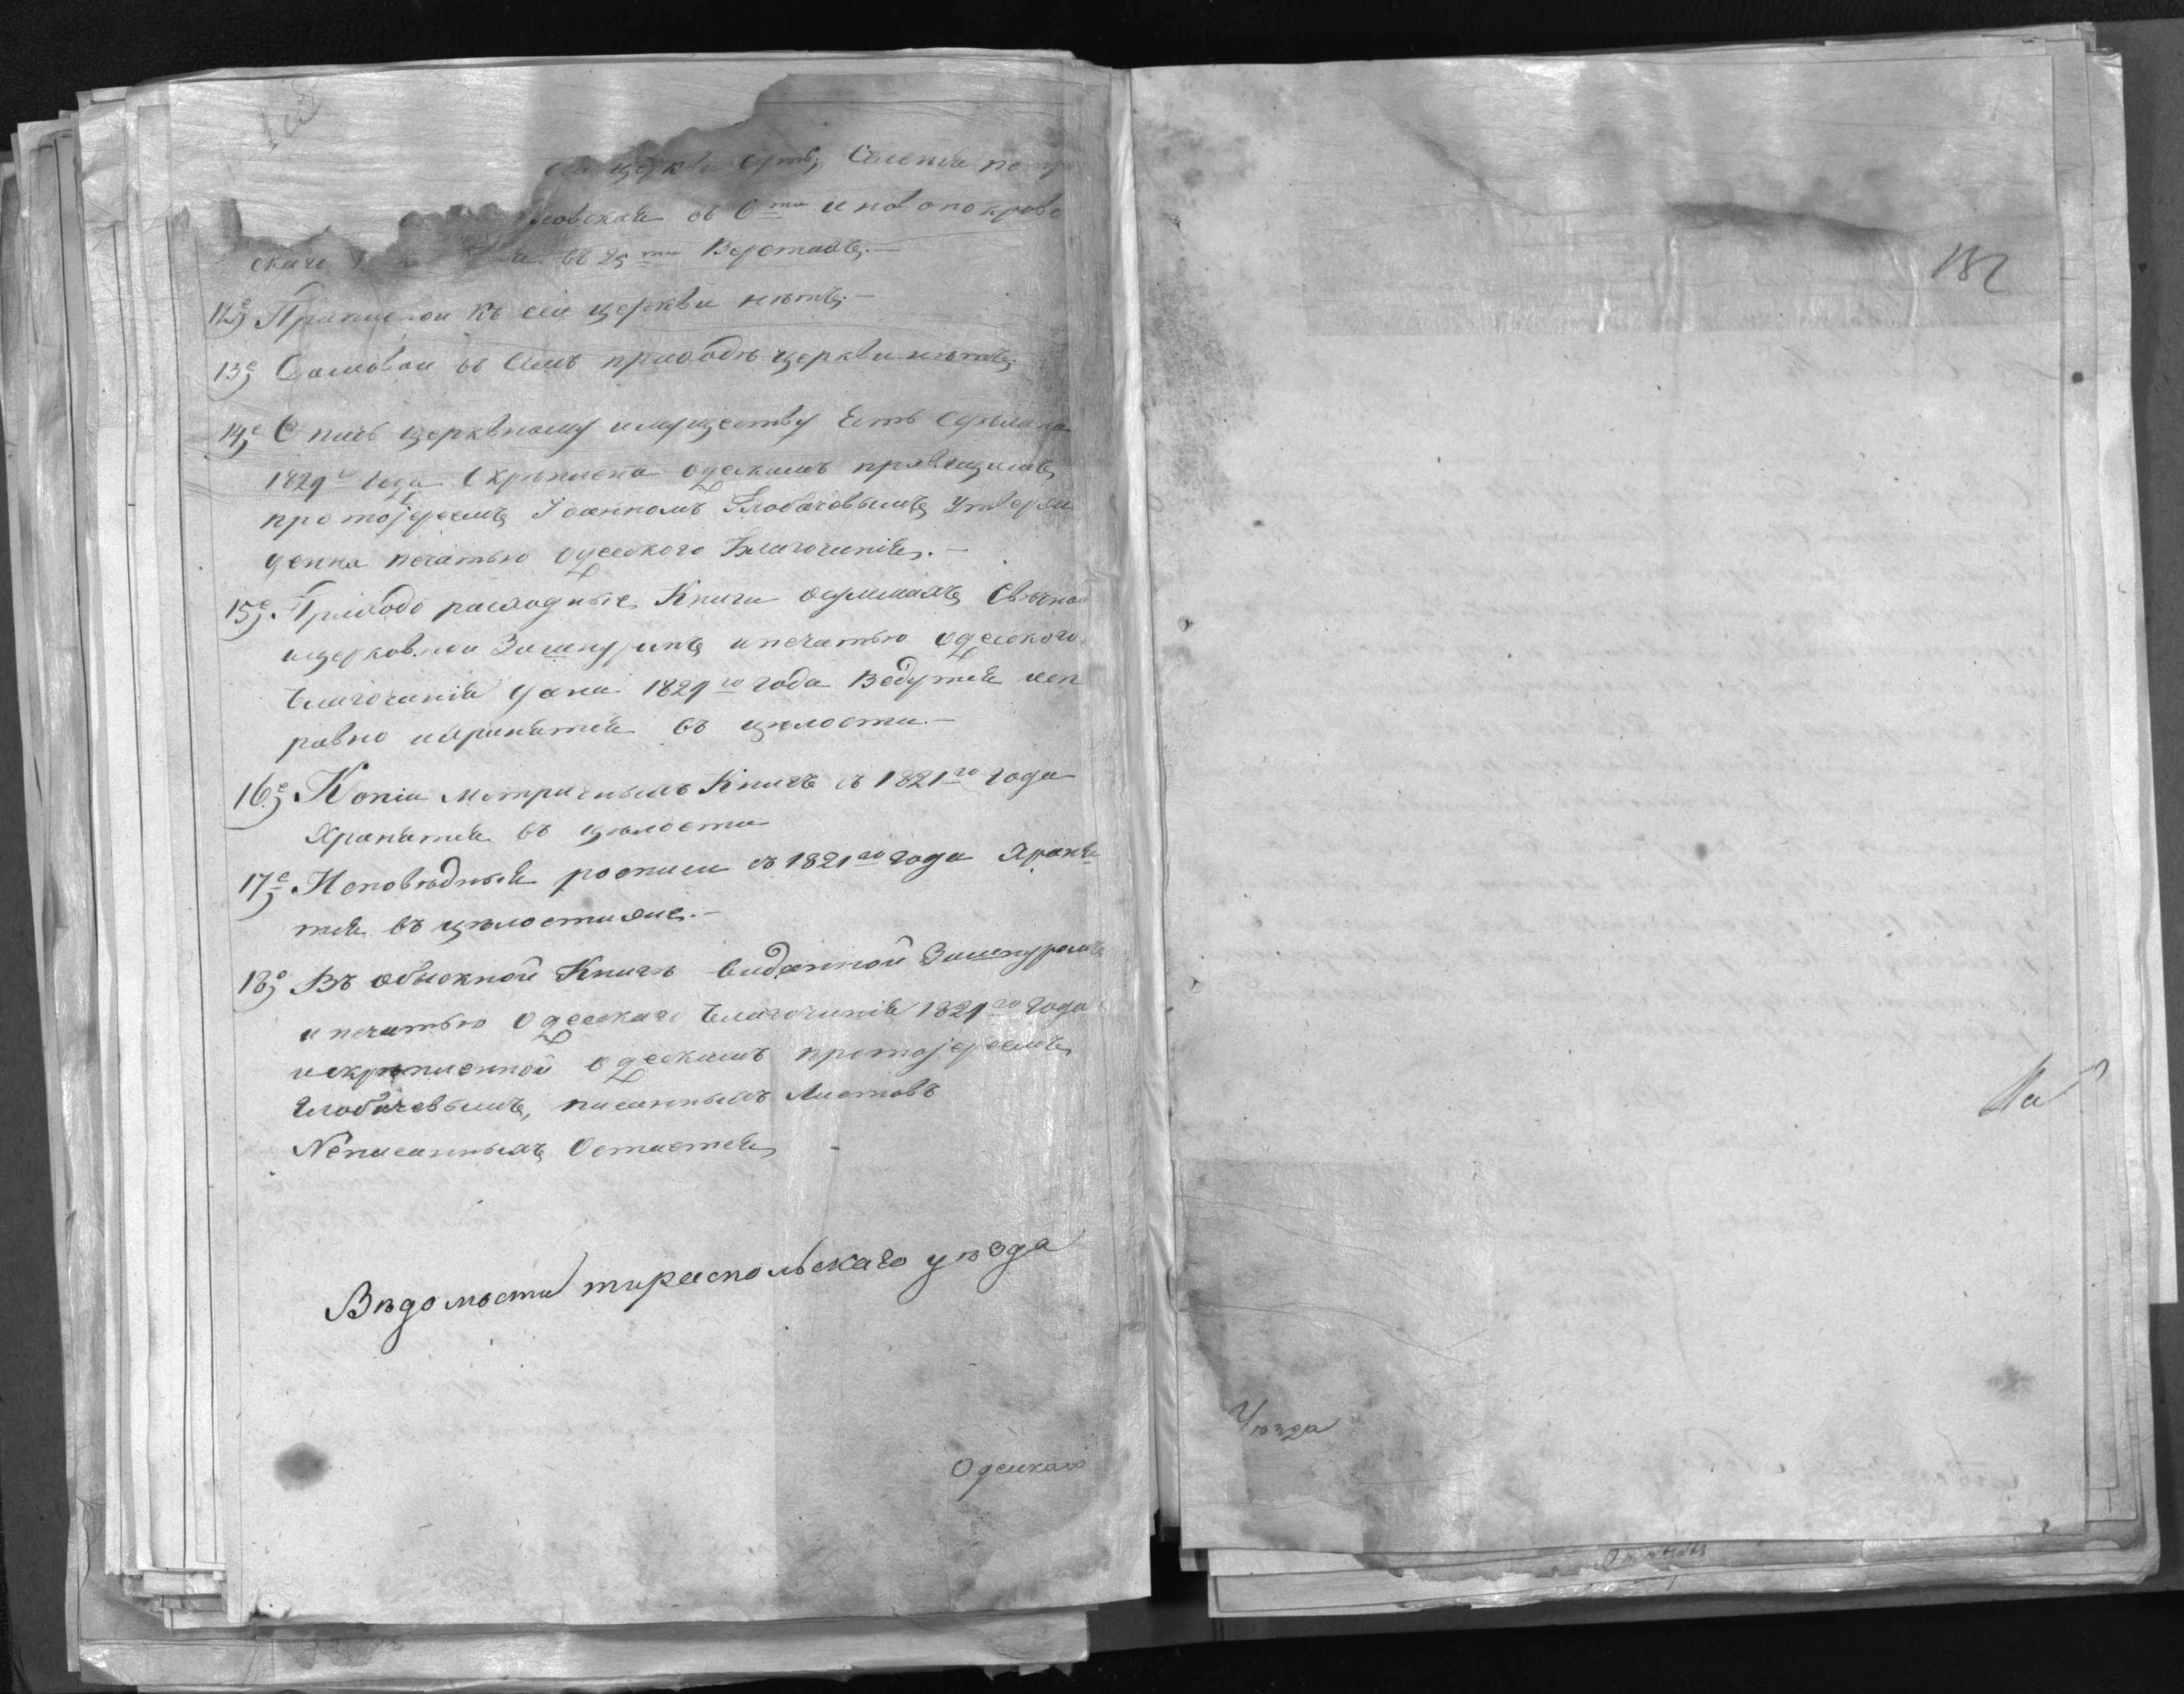 сей церкви суть, Селенія петро
ловская въ 6ти и новопокров
скаго въ 25ти Верстахъ.—
12е, Приписной къ сей церкви нѣтъ.—
13е, Домовой въ семъ приходѣ церкви нѣтъ.
14е, Опись церковному имуществу Есть Сдѣлана
1829го Года Скрѣплена одескимъ
протоіереемъ Іоанномъ Глобачовымъ Утверж
денна печатью одесского Благочинія.—
15е, Приходо расходные Книги осуммахъ Свѣчной
ицерковной Зашнуромъ ипечатью одесского
благочинія даны 1829го года Ведутся исп
равно ихранятся въ цѣлости.—
16е, Копіи метричныхъ Книгъ съ 1821го года
Хранятся въ цѣлости
17е, Исповѣдныя росписи съ 1821го года Храня
тся въ цѣлостижъ.—
18е, Въ обыскной Книгѣ виданной Зашнуромъ
и печатью Одесскаго благочинія 1829го Года
искрѣпленной одескимъ протоіереемъ
Глобачевымъ, писанныхъ Листовъ
Неписанныхъ Остается —
Вѣдомости тираспольскаго уѣзда
Одескаго
182
На
Уѣзда